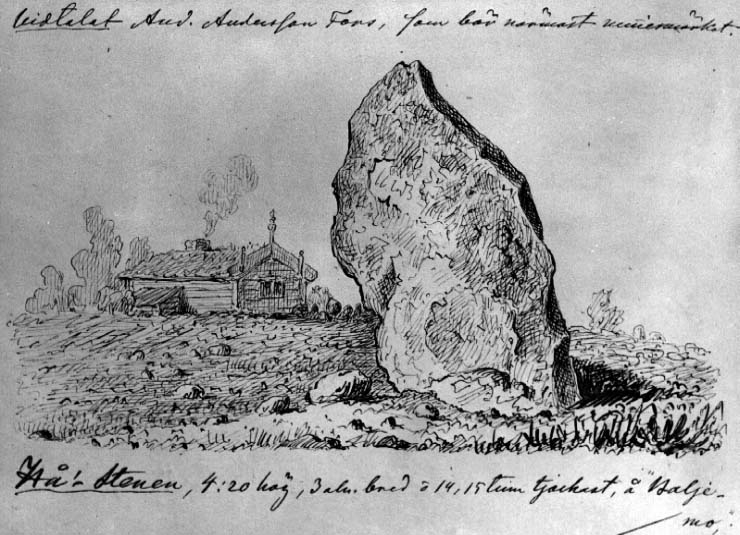 vidtalat And. Andersson Fors, som bor närmast minnesmärket.
Hå'-Stenen, 4:20 hög, 3 aln. bred o 14, 15 tum tjockast, å "Balje-
mo".